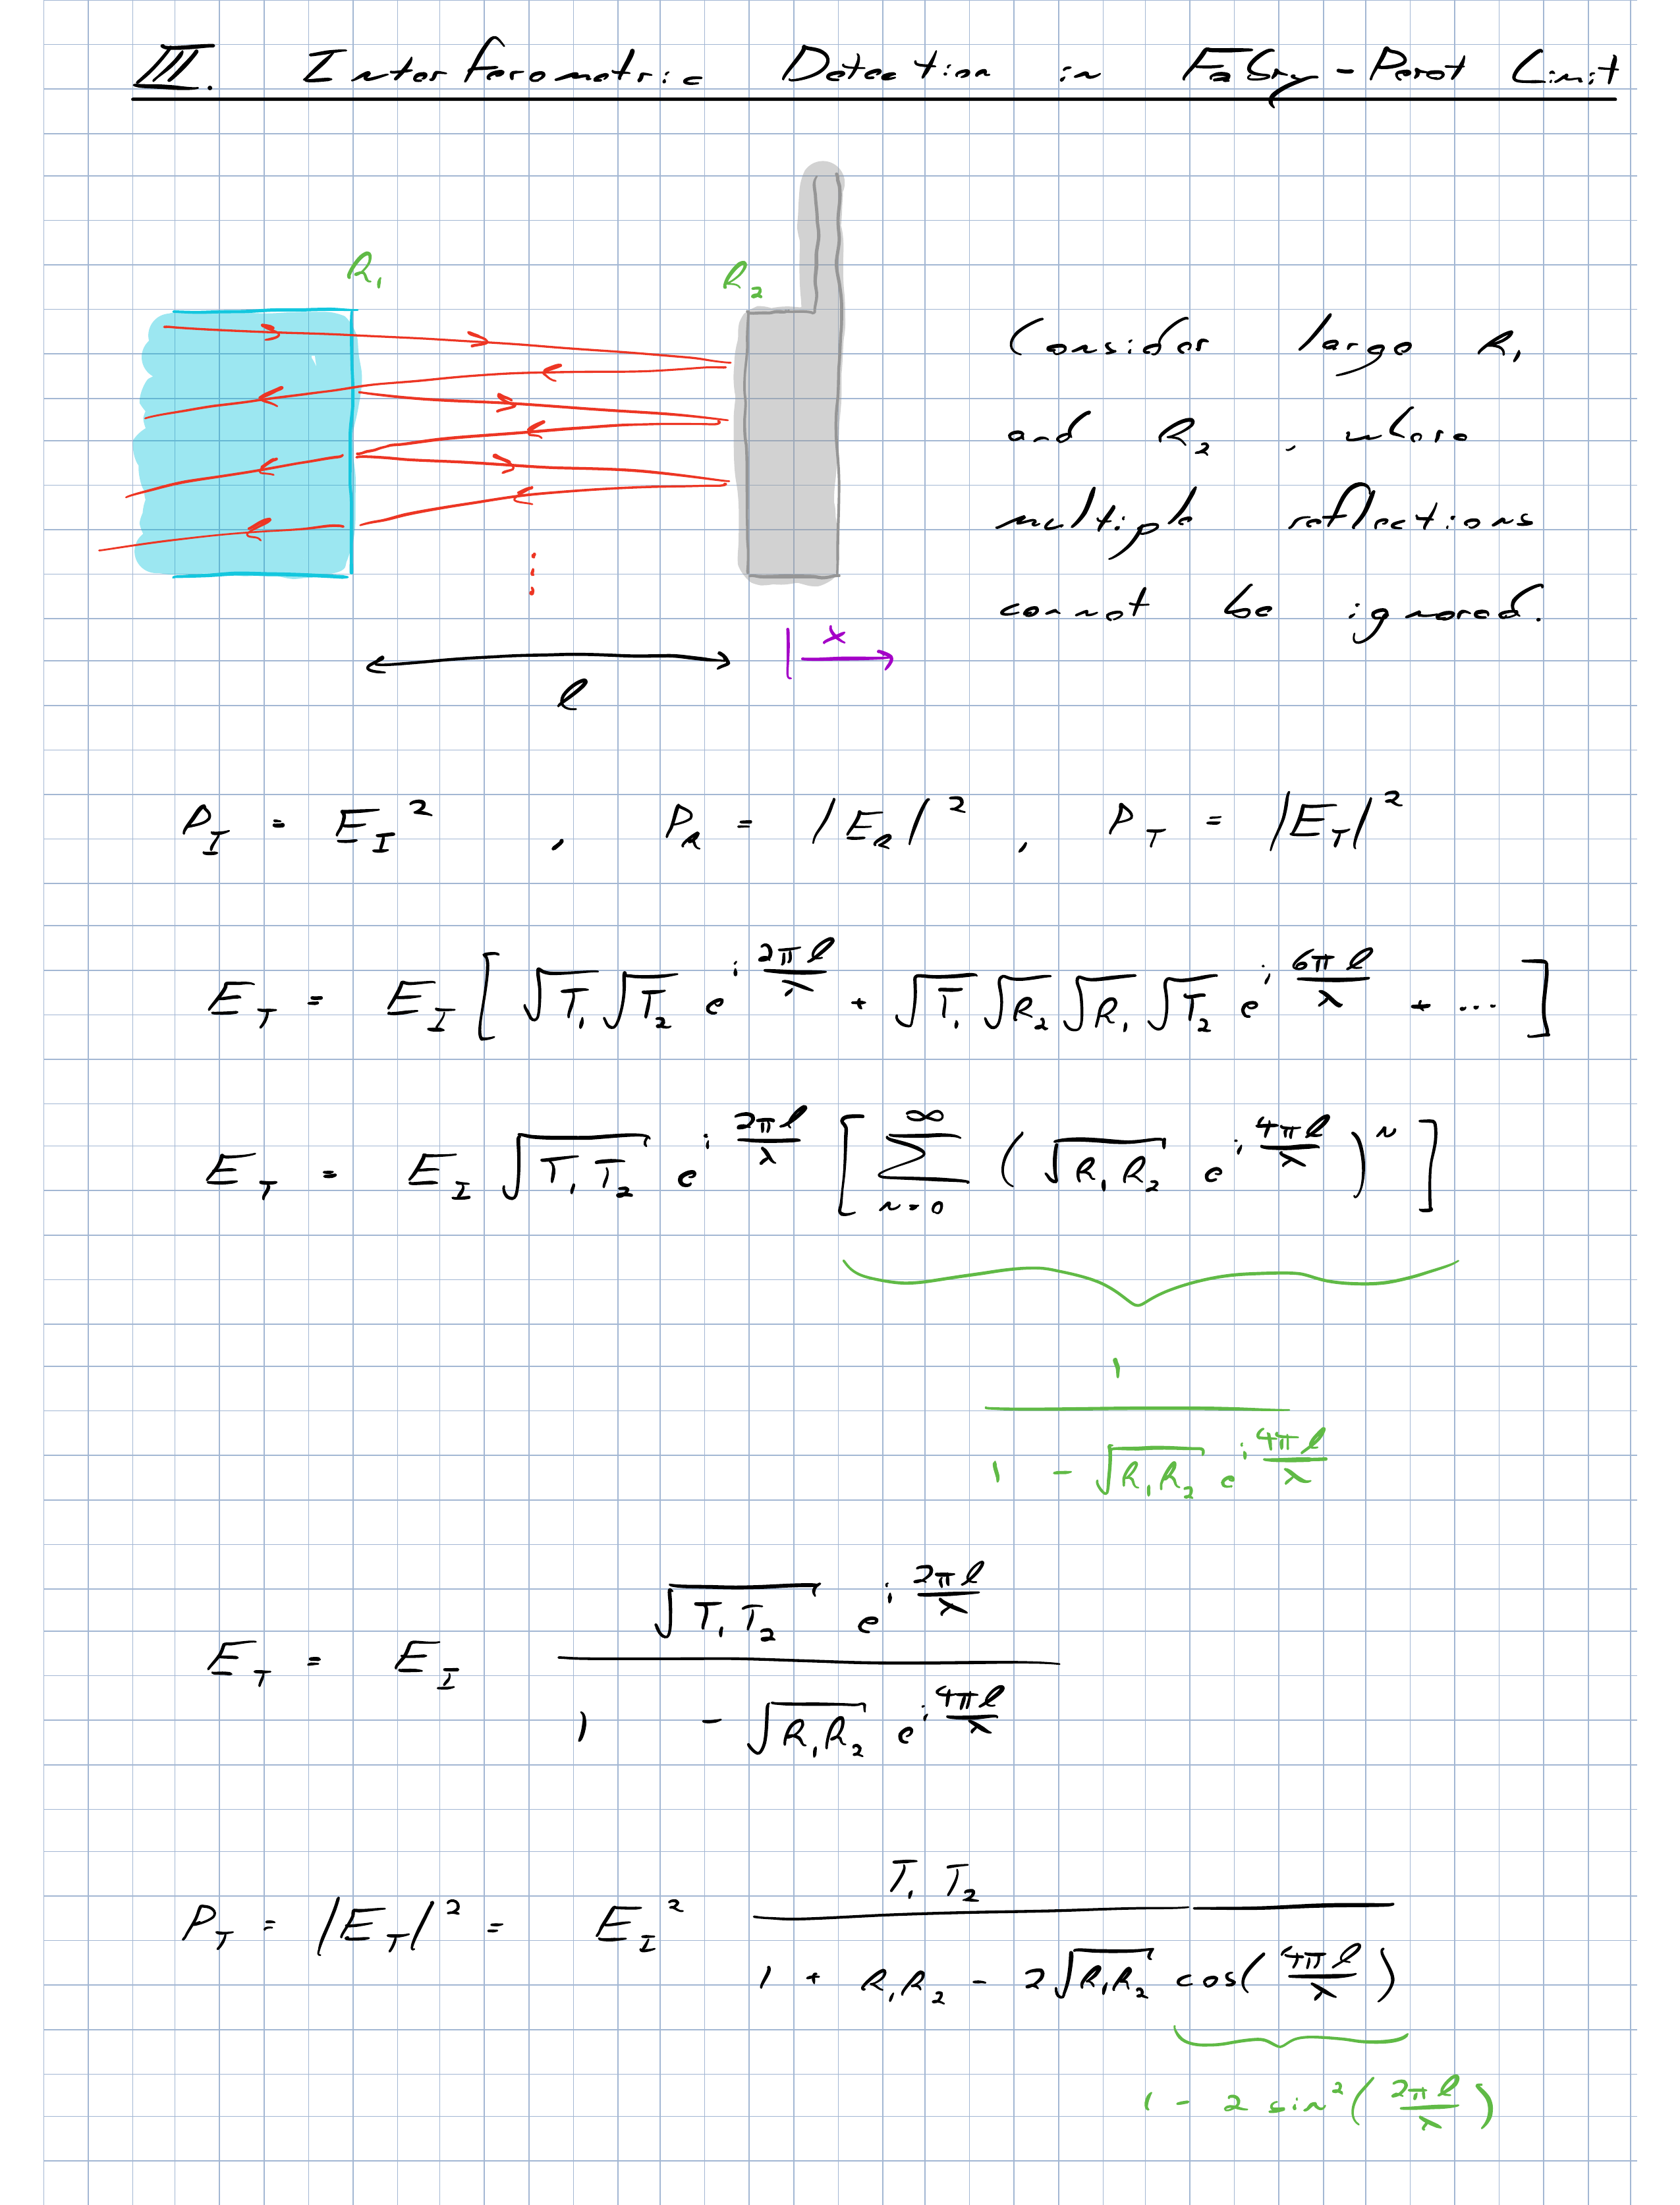 III. Interferometric Detection in Fabry-Perot Limit
R₁
R₂
Consider large R₁
and R₂, where
multiple reflections
cannot be ignored.
x
ℓ
P_I = E_I² , P_R = |E_R|² , P_T = |E_T|²
E_T = E_I [ √T₁ √T₂ e^{i 2πℓ/λ} + √T₁ √R₂ √R₁ √T₂ e^{i 6πℓ/λ} + ... ]
E_T = E_I √(T₁T₂) e^{i 2πℓ/λ} [ Σ_{n=0}^{∞} ( √(R₁R₂) e^{i 4πℓ/λ} )^n ]
1 / (1 - √(R₁R₂) e^{i 4πℓ/λ})
E_T = E_I √(T₁T₂) e^{i 2πℓ/λ} / (1 - √(R₁R₂) e^{i 4πℓ/λ})
P_T = |E_T|² = E_I² T₁T₂ / (1 + R₁R₂ - 2√(R₁R₂) cos(4πℓ/λ))
1 - 2 sin²(2πℓ/λ)